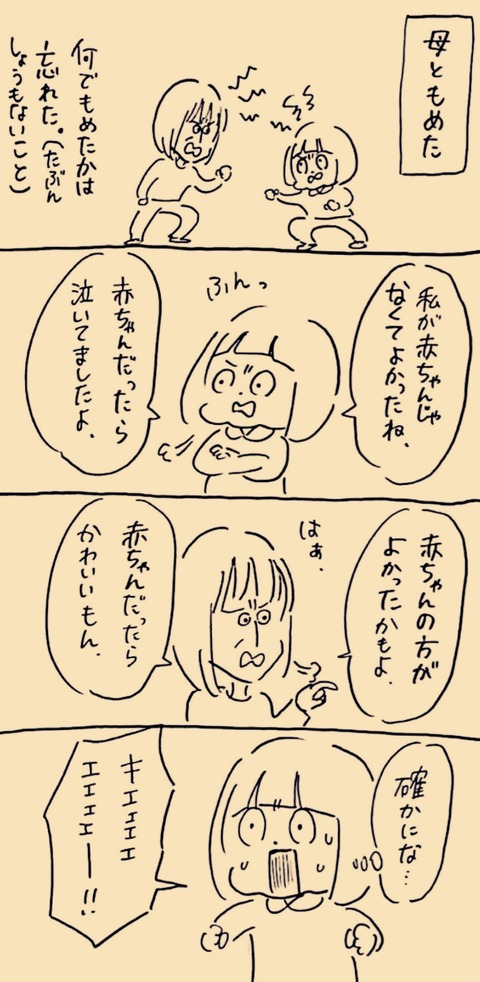 母ともめた
何でもめたかは
忘れた。(たぶん
しょうもないこと)
私が赤ちゃんじゃ
なくてよかったね、
ふんっ
赤ちゃんだったら
泣いてましたよ、
赤ちゃんの方が
よかったかもよ、
はぁ、
赤ちゃんだったら
かわいいもん、
確かにな…
キエエエエ
エエエエー!!